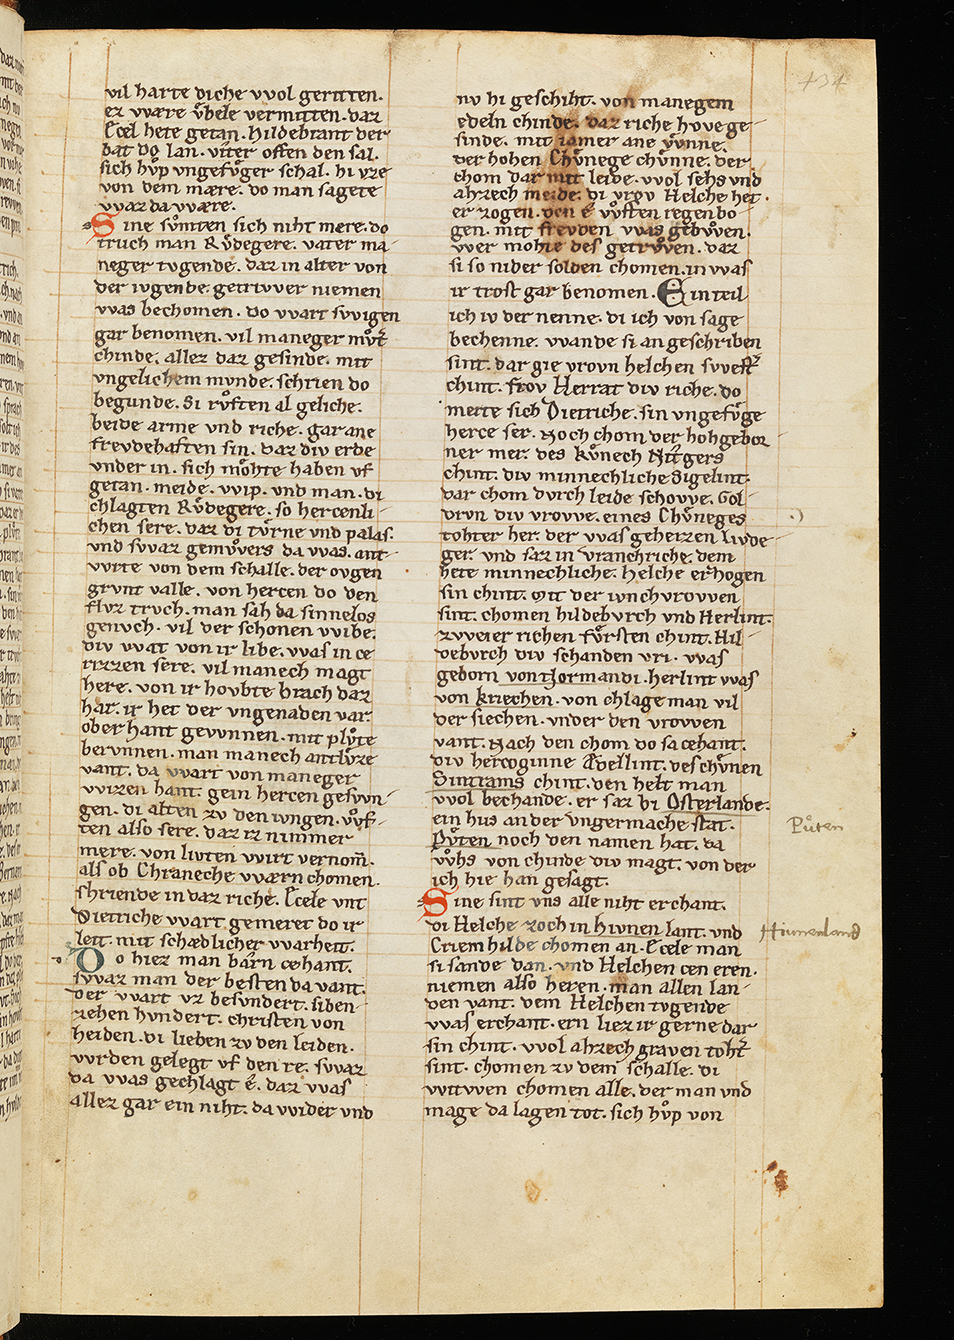 vil harte diche wol geritten.
ez wære vͦbele vermitten. daz
Ecel hete getan. Hildebrant der
bat do lan. viter offen den sal.
sich hvͦp vngefvͤger schal. hi vze
von dem mære. do man sagete
waz da wære.
Sine svͦmten sich niht mere. do
truch man Rvͤdegere. vater ma-
neger tvgende. daz in alter von
der iugende. getriwer niemen
was bechomen. do wart swigen
gar benomen. vil maneger mvͦt̾
chinde. allez daz gesinde. mit
vngelichem munde. schrien do
begunde. Si rvͦften al geliche.
beide arme vnd riche. gar ane
frevdehaften sin. daz div erde
vnder in. sich moͤhte haben vf
getan. meide. wip. vnd man. di
chlagten Rvͤdegere. so hercenli-
chen sere. daz di tvͤrne vnd palas.
vnd swaz gemvͦwers da was. ant-
wrte von dem schalle. der ovgen
grvnt walle. von hercen do den
flvz truch. man sah da sinnelos
genuch. vil der schonen wibe.
div wat von ir libe. was in ce
rizzen sere. vil manech magt
here. von ir hovbte brach daz
har. ir het der vngenaden var.
oberhant gewnnen. mit plvͦte
berunnen. man manech antluze
vant. da wart von maneger
wizen hant. gein hercen geswn-
gen. di alten zv den iungen. wͦf-
ten also sere. daz iz nimmer
mere. von livten wirt vernom̅.
als ob Chraneche wærn chomen.
shriende in daz riche. Ecele vnt
Dietriche wart gemeret do ir
leit. mit schædlicher warheit.
Do hiez man barn cehant.
swaz man der besten da vant.
der wart vz besundert. siben-
zehen hvndert. christen von
heiden. di lieben zv den leiden.
wrden gelegt vf den re. swaz
da was gechlagt e. daz was
allez gar ein niht. da wider vnd
nv hi geschiht. von manegem
edeln chinde. daz riche hovege-
sinde. mit iamer ane wnne.
der hohen Chvͤnege chvͤnne. der
chom dar mit leide. wol sehs vnd
ahzech meide. di vrov Helche het.
er zogen. den e wͦften regenbo-
gen. mit frevden was gebwen.
wer mohte des getrvͦwen. daz
si so nider solden chomen. in was
ir trost gar benomen. Ein teil
ich iv der nenne. di ich von sage
bechenne. wande si angeschriben
sint. dar gie vrovn helchen swest̾
chint. frov Herrat div riche. do
merte sich Dietriche. sin vngefvͤge
herce ser. Noch chom der hohgebor-
ner mer. des kvͤnech Nitgers
chint. div minnechliche Sigelint.
dar chom durch leide schowe. Gol-
drvn div vrowe. eines Chvͤneges
tohter her. der was geheizen livde-
ger. vnd saz in vranchriche. dem
hete minnechliche. Helche erzhogen
sin chint. Mit der iunchvrowen
sint. chomen hildebvrch vnd Herlint.
zweier richen fvͤrsten chint. Hil-
debvrch div schanden vri. was
geborn von Normandi. herlint was
von kriechen. von chlage man vil
der siechen. vnder den vrowen
vant. Nach den chom do sa cehant.
div hercoginne Adellint. des chvͤnen
Sintrams chint. den helt man
wol bechande. er saz bi Osterlande.
ein hus an der vngermache stat.
Pvͤten noch den namen hat. da
wͦhs von chinde div magt. von der
ich hie han gesagt.
Sine sint vns alle niht erchant.
di Helche zoch in hivnen lant. vnd
Criemhilde chomen an. Ecele man
si sande dan. vnd Helchen cen eren.
niemen also heren. man allen lan-
den vant. dem Helchen tvgende
was erchant. ern liez ir gerne dar
sin chint. wol ahzech graven toht̾
sint. chomen zv dem schalle. di
witwen chomen alle. der man vnd
mage da lagen tot. sich hvͦp von
Püten
Hiunenland